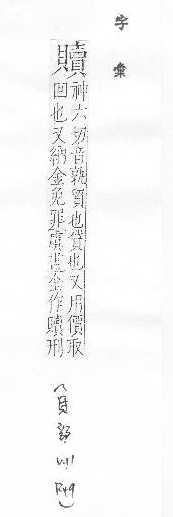 字彙
贖
神六切音孰質也貸也又用價取
回也又納金免罪虞書金作贖刑
(貝部